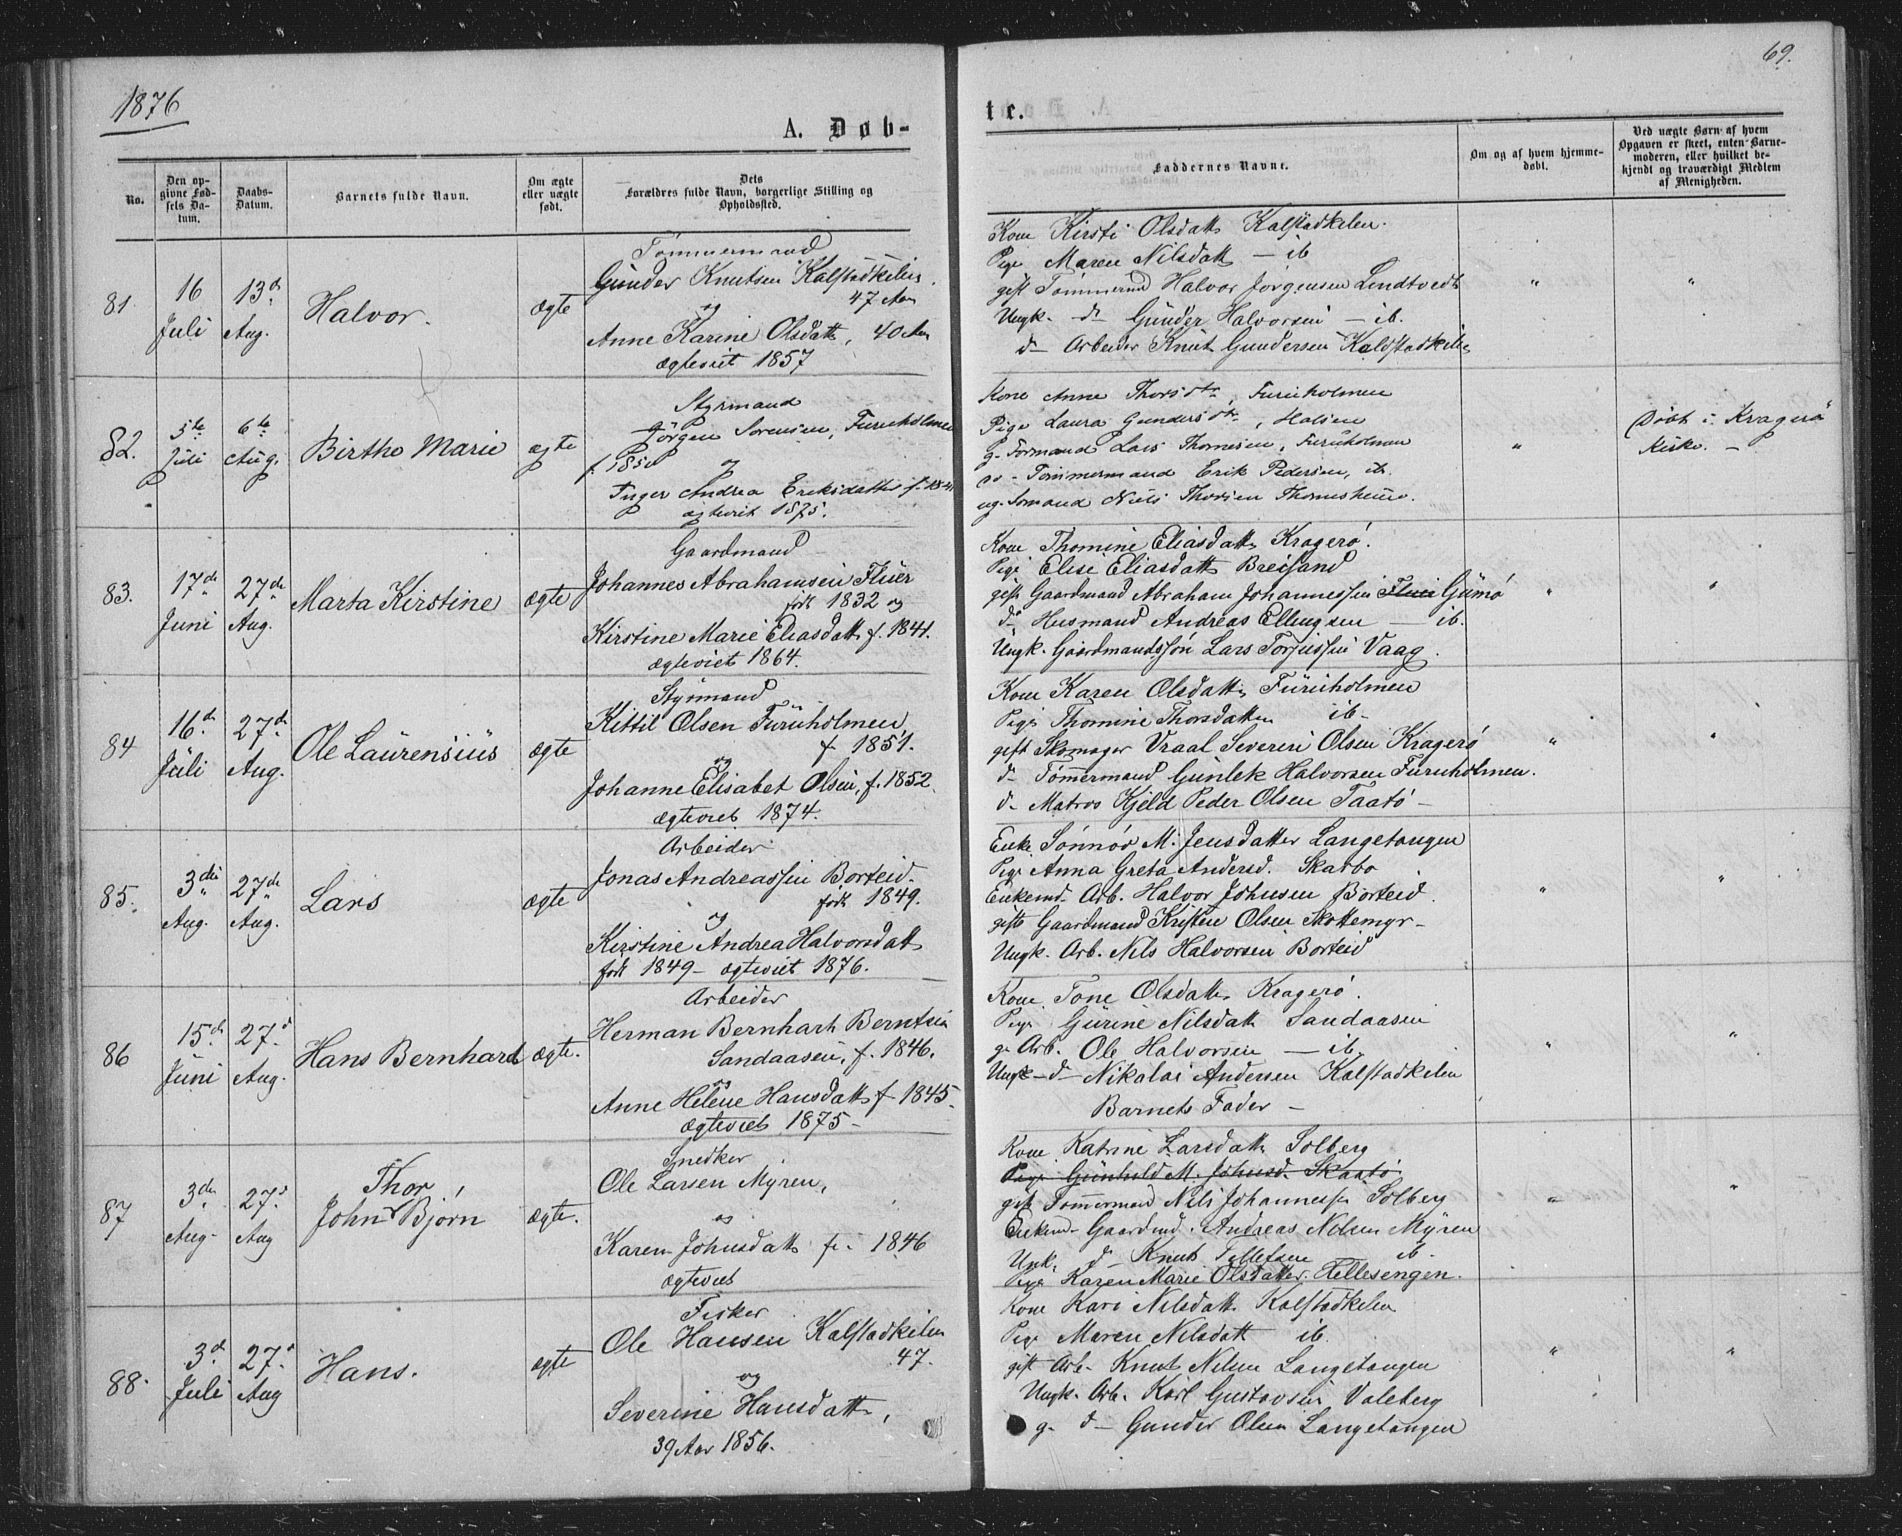 1876
69.
A. Døb-
te.
No.
Den op-
givne Fød-
sels Da-
tum.
Daabs-
Datum.
Barnets fulde Navn.
Om ægte
eller uægte
født.
Dets
Forældres fulde Navn, borgerlige Stilling og
Opholdssted.
Faddernes Navne.
Om og af hvem hjemme-
døbt.
Ved uægte Børn af hvem
Opgaven er skeet, enten Barne-
moderen, eller hvilket be-
kjendt og troværdigt Medlem
af Menigheden.
81.
16
Juli
13d
Aug.
Halvor.
ægte
Tømmermand
Gunder Knutsen Kalstadkilen
47 Aar
og
Anne Karine Olsdatt, 40 Aar
ægteviet 1857
Kone Kirsti Olsdatt Kalstadkilen.
Pige Maren Nilsdatt — ib
gift Tømmermd Halvor Jørgensen Lindtvedt
Ungk. d— Gunder Halvorsen — ib.
d— Arbeider Knut Gundersen Kalstadkilen
" "
82.
5te
Juli
6te
Aug.
Birthe Marie
ægte
Styrmand
Jörgen Sorensen, Furuholmen
f. 1850 og
Inger Andrea Eriksdatter f. 1841
ægteviet 1875.
Kone Anne Thorsdtr, Furuholmen
Pige Laura Gundersdtr, Halsen
g. Formand Lars Thomesen, Furuholmen
do - Tømmermand Erik Pedersen, ib.
ug. Sømand Niels Thorsen Thomesheim.
"
Døbt i Kragerø
Kirke. —
83.
17de
Juni
27de
Aug.
Marta Kirstine
ægte
Gaardmand
Johannes Abrahamsen Fluer
født 1832 og
Kirstine Marie Eliasdatt f. 1841.
ægteviet 1864.
Kone Thomine Eliasdatt Kragerø.
Pige Elise Eliasdatt Breisand
gift Gaardmand Abraham Johannessen Fluer Gumø
d— Husmand Andreas Ellingsen — ib.
Ungk. Gaardmandssøn Lars Torjussen Vaag.
" "
84
16d.
Juli
27d
Aug.
Ole Laurensius
ægte
Styrmand
Kittil Olsen Furuholmen
f 1851.
og
Johanne Elisabet Olsen, f. 1852
ægteviet 1874.
Kone Karen Olsdatt Furuholmen
Pige Thomine Thorsdatter ib—
gift Skomager Vraal Severin Olsen Kragerø
d— Tømmermand Gunlek Halvorsen Furuholmen.
d— Matros Kjeld Peder Olsen Taatø —
" "
85.
3die
Aug.
27de
Aug.
Lars
ægte
Arbeider
Jonas Andreassen Borteid.
født 1849.
og
Kirstine Andrea Halvorsdatt
født 1849 — ægteviet 1876.
Enke Sønnøv M. Jensdatter Langetangen
Pige Anna Greta Andersd. Skarbo
Enkemd. Arb. Halvor Johnsen Borteid.
gift Gaardmand Kristen Olsen Skottemyr—
Ungk. Arb. Nils Halvorsen Borteid
" "
86
15d
Juni
27d
Aug.
Hans Bernhard
ægte.
Arbeider
Herman Bernhart Berntsen
Sandaasen, f. 1846.
og
Anne Helene Hansdatt f 1845.
ægteviet 1875 —
Kone Tone Olsdatt Kragerø.
Pige Gurine Nilsdatt Sandaasen
g. Arb. Ole Halvorsen — ib.
Ungk — d— Nikolai Andersen Kalstadkilen
Barnets Fader —
" "
87
3die
Aug.
27d
Aug
Thor,
John Bjørn
ægte.
Snedker
Ole Larsen Myren,
og
Karen Johnsdatt f. 1846
ægteviet
Kone Katrine Larsdatt Solberg
Pige Gunhild M. Johnsd. Skaatø
gift Tømmermand Nils Johannessen Solberg
Enkemd. Gaardmd. Andreas Nilsen Myren
Unk. d— Knut Tellefsen ib.
Pige Karen Marie Olsdatter. Hellesengen.
" "
88.
3d
Juli
27d
Aug
Hans.
ægte
Fisker
Ole Hansen Kalstadkilen
47.
og
Severine Hansdatt,
39 Aar 1856.
Kone Kari Nilsdatt Kalstadkilen
Pige Maren Nilsdatt ib.
gift Arb. Knut Nilsen Langetangen
Ungk. Arb. Karl Gustavsen Valeberg
g. d— Gunder Olsen Langetangen
" "